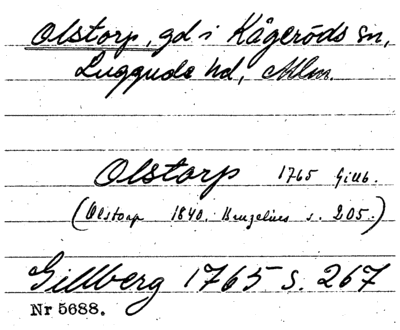 Olstorp, gd i Kågeröds sn,
Luggude hd, Mlm.
Olstorp 1765 Gillb.
(Olstorp 1840. Bruzelius s. 205.)
Gillberg 1765 s. 267
Nr 5688.